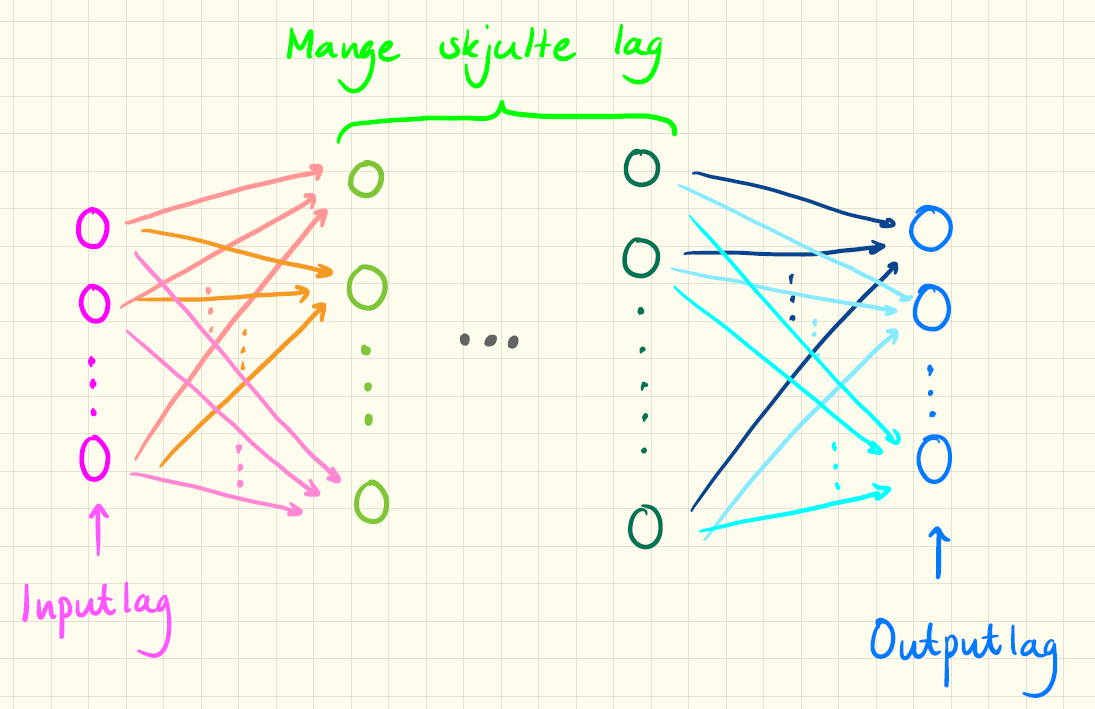 Mange skjulte lag
Inputlag
Outputlag